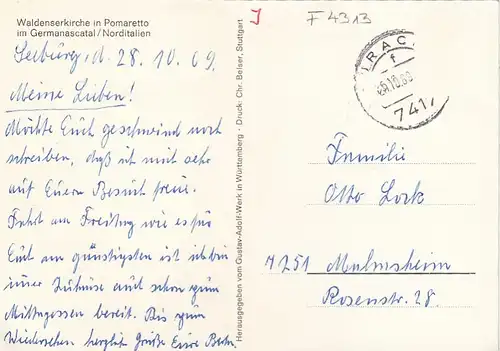 Waldenserkirche in Pomaretto
im Germanascatal/Norditalien
Seeburg, d. 28. 10. 69
Meine Lieben!
Möchte Euch geschwind noch
schreiben, daß ich mich sehr
auf Euern Besuch freue.
Fahrt am Freitag wie es für
Euch am günstigsten ist ich bin
immer Zuhause auch schon zum
Mittagessen bereit. Bis zum
Wiedersehen herzlich Grüße Eure
Herausgegeben vom Gustav-Adolf-Werk in Württemberg · Druck: Chr. Belser, Stuttgart
F 4313
URACH
f
10.69
7417
Familie
Otto Lock
7251 Malmsheim
Rosenstr. 28.